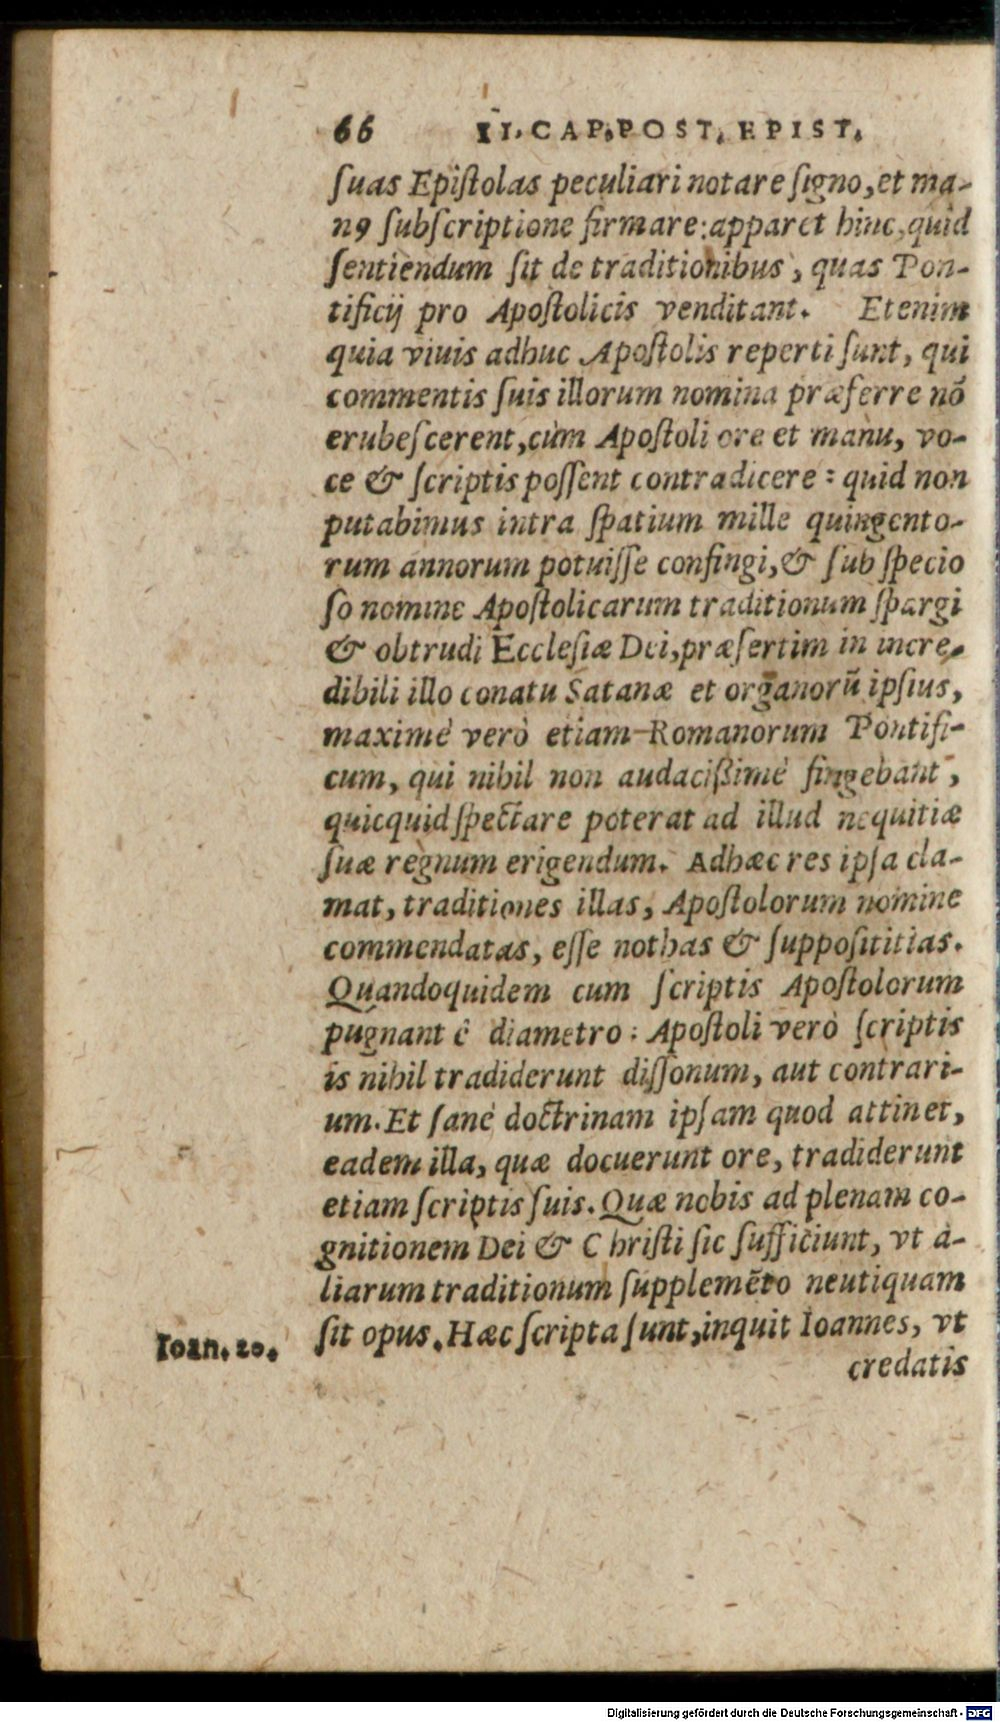 66 II. CAP. POST. EPIST.
ſuas Epiſtolas peculiari notare ſigno, et ma-
nꝰ ſubſcriptione firmare: apparet hinc, quid
ſentiendum ſit de traditionibus, quas Pon-
tificij pro Apoſtolicis venditant. Etenim
quia viuis adhuc Apoſtolis reperti ſunt, qui
commentis ſuis illorum nomina præferre nõ
erubeſcerent, cùm Apoſtoli ore et manu, vo-
ce & ſcriptis poſſent contradicere: quid non
putabimus intra ſpatium mille quingento-
rum annorum potuiſſe confingi, & ſub ſpecio
ſo nomine Apoſtolicarum traditionum ſpargi
& obtrudi Eccleſiæ Dei, præſertim in incre-
dibili illo conatu Satanæ et organorũ ipſius,
maximè verò etiam Romanorum Pontifi-
cum, qui nihil non audacißimè fingebant,
quicquid ſpectare poterat ad illud nequitiæ
ſuæ regnum erigendum. Adhæc res ipſa cla-
mat, traditiones illas, Apoſtolorum nomine
commendatas, eſſe nothas & ſuppoſititias.
Quandoquidem cum ſcriptis Apoſtolorum
pugnant è diametro: Apoſtoli verò ſcriptis
is nihil tradiderunt diſſonum, aut contrari-
um. Et ſanè doctrinam ipſam quod attinet,
eadem illa, quæ docuerunt ore, tradiderunt
etiam ſcriptis ſuis. Quæ nobis ad plenam co-
gnitionem Dei & Chriſti ſic ſufficiunt, vt a-
liarum traditionum ſupplemẽto neutiquam
ſit opus. Hæc ſcripta ſunt, inquit Ioannes, vt
Ioan. 20.
credatis
Digitalisierung gefördert durch die Deutsche Forschungsgemeinschaft - DFG